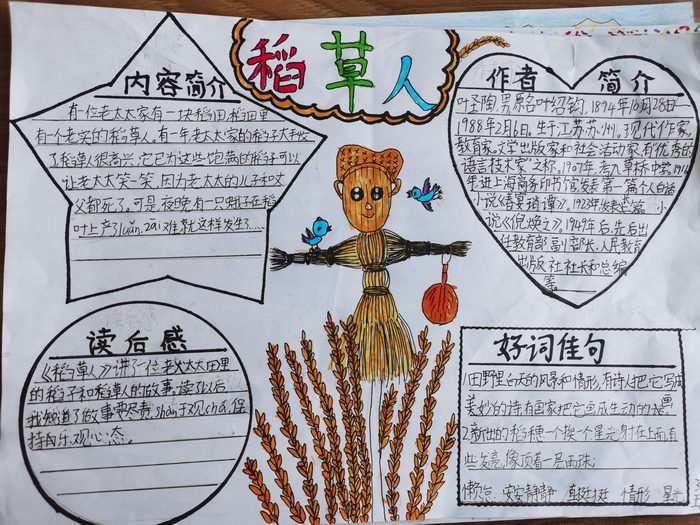 稻草人
内容简介
有一位老太太家有一块稻田,稻田里
有一个老实的稻草人。有一年老太太家的稻子大丰收
了稻草人很高兴,它已为这些饱满的稻子可以
让老太太笑一笑,因为老太太的儿子和丈
父都死了。可是夜晚有一只蛾子在稻
叶上产了luǎn,zāi难就这样发生了……
作者简介
叶圣陶,原名叶绍钧,1894年10月28日—
1988年2月16日。生于江苏苏州。现代作家、
教育家、文学出版家和社会活动家,有“优秀的
语言技术家”之称。1907年,考入草桥中学。1914
年进上海商务印书馆发表第一篇小
小说《倪焕之》,1949年后,先后出
任教育部副部长、人民教育
出版社社长和总编
等
读后感
《稻草人》讲了一位老太太田里
的稻子和稻草人的故事。读了以后
我知道了做事要尽责,shàn于观chá,保
持好乐观心态。
好词佳句
1.田野里白天的风景和情形,有诗人把它写成
美妙的诗,有画家把它画成生动的画
2.新出的稻穗一个挨一个,星光射在上面,有
些发亮,像顶着一层水珠。
安安静静 直挺挺 情形